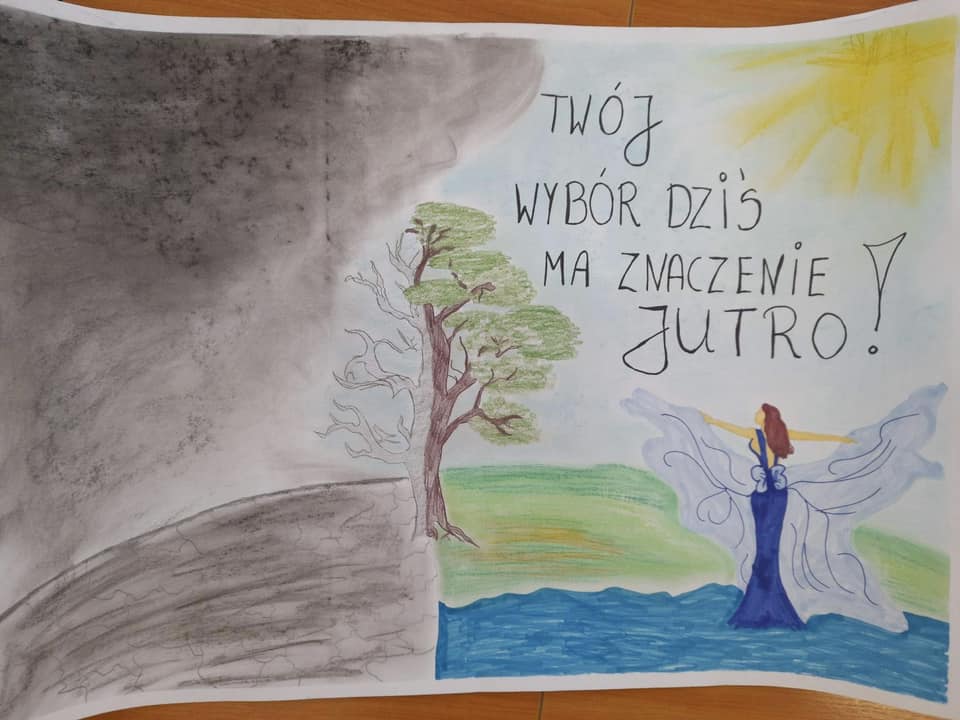 TWÓJ
WYBÓR DZIŚ
MA ZNACZENIE
JUTRO!